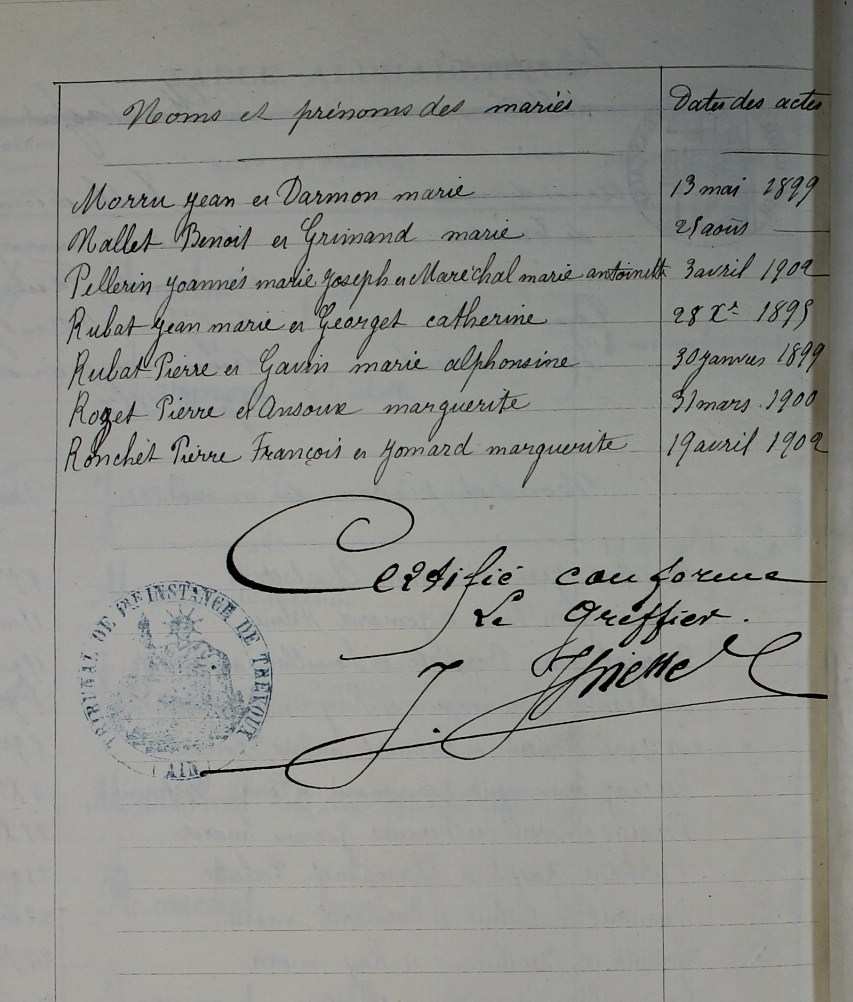 Noms et prénoms des mariés Dates des actes
Morru Jean et Darmon marie 13 mai 1899
Mallet Benoit et Grimand marie 25 août —
Pellerin Joannés marie Joseph et Maréchal marie antoinette 3 avril 1902
Rubat Jean marie et Georget catherine 28 Xr 1895
Rubat Pierre et Gavin marie alphonsine 30 janvier 1899
Roget Pierre et Ansoux marguerite 31 mars 1900
Ronchet Pierre François et Jomard marguerite 19 avril 1902
Certifié conforme
Le Greffier.
J.
TRIBUNAL DE 1RE INSTANCE DE TRÉVOUX
(AIN)